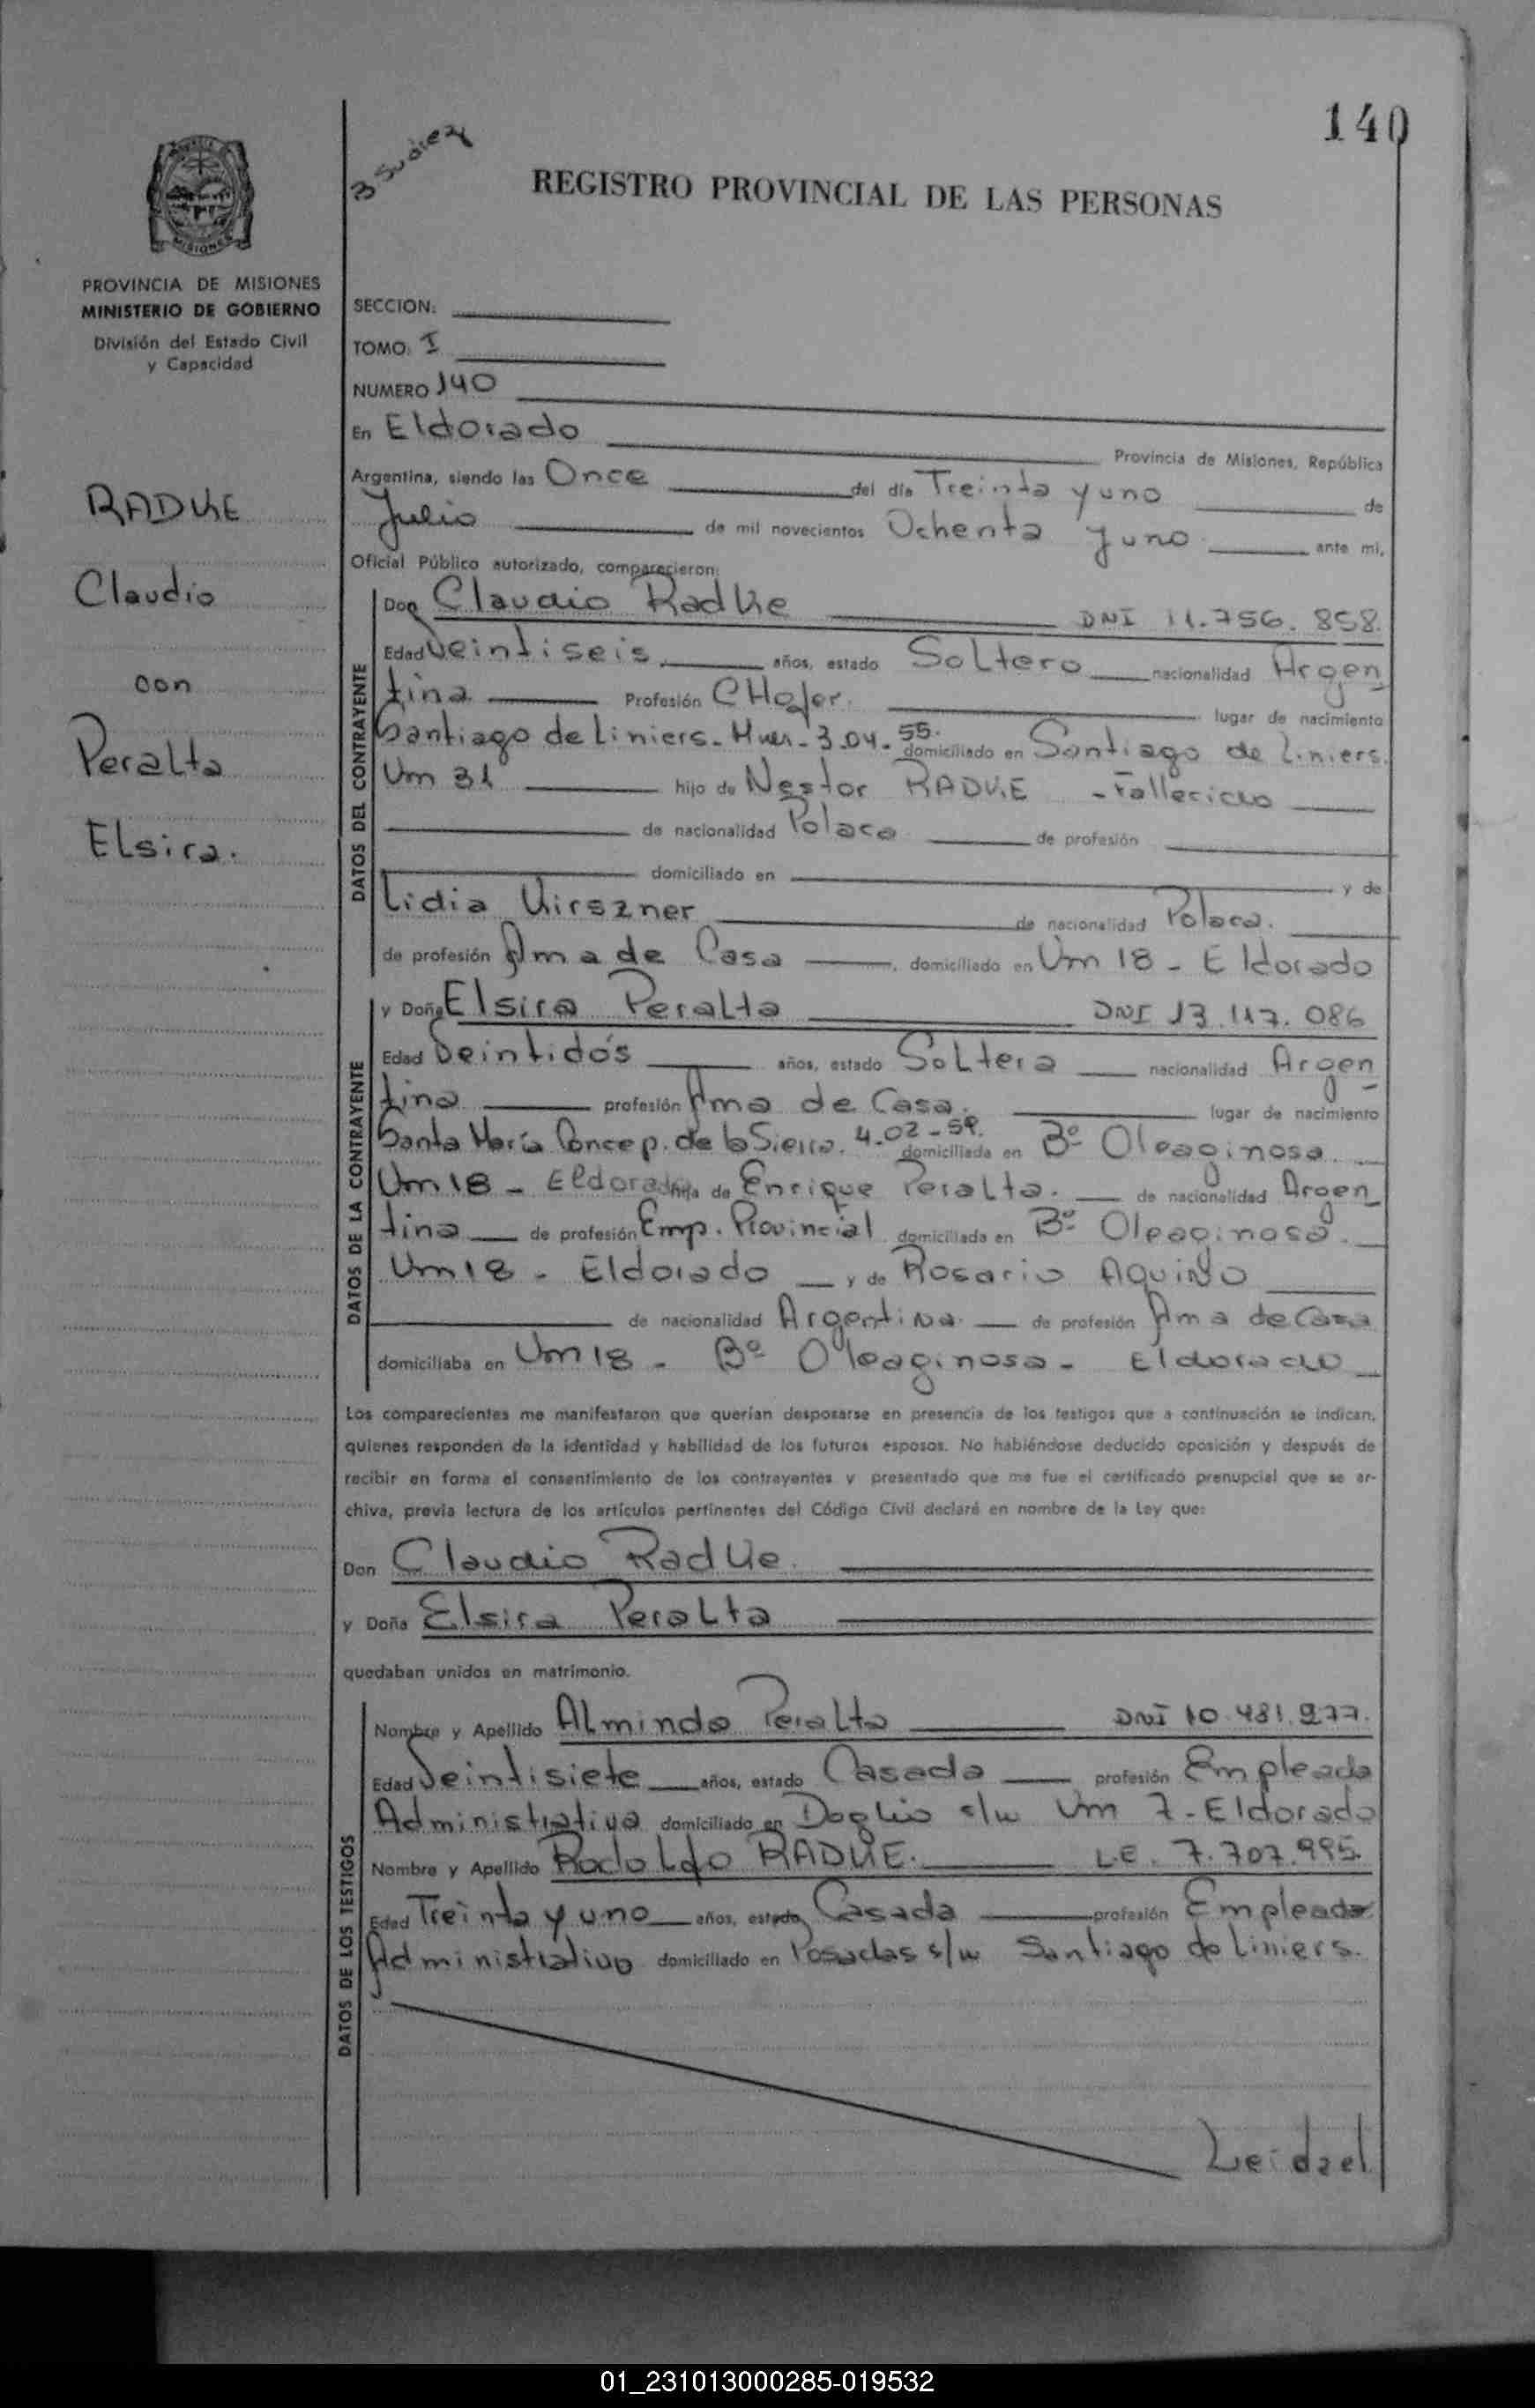 140
REGISTRO PROVINCIAL DE LAS PERSONAS
MISIONES
PROVINCIA DE MISIONES
MINISTERIO DE GOBIERNO
División del Estado Civil
y Capacidad
RADKE
Claudio
con
Peralta
Elsira.
SECCION:
TOMO: I
NUMERO 140
En Eldorado Provincia de Misiones, República
Argentina, siendo las Once del día Treinta y uno de
Julio de mil novecientos Ochenta y uno ante mi,
Oficial Público autorizado, comparecieron:
DATOS DEL CONTRAYENTE
Don Claudio Radke DNI 11.756.858.
Edad Veintiseis años, estado Soltero nacionalidad Argen
tina Profesión CHofer. lugar de nacimiento
Santiago de Liniers. 3.04.55. domiciliado en Santiago de Liniers.
Km 31 hijo de Nestor RADKE - Fallecido
de nacionalidad Polaca de profesión
domiciliado en y de
Lidia Kirszner de nacionalidad Polaca.
de profesión Ama de Casa, domiciliado en Km 18 - Eldorado
DATOS DE LA CONTRAYENTE
y Doña Elsira Peralta DNI 13.117.086
Edad Veintidós años, estado Soltera nacionalidad Argen
tina profesión Ama de Casa. lugar de nacimiento
Santa María Concep. de la Sierra. 4-02-59. domiciliada en Bº Oleaginosa.
Km 18 - Eldorado hija de Enrique Peralta. de nacionalidad Argen
tina de profesión Emp. Provincial domiciliada en Bº Oleaginosa.
Km 18 - Eldorado y de Rosario Aquino
de nacionalidad Argentina de profesión Ama de Casa
domiciliaba en Km 18 - Bº Oleaginosa - Eldorado
Los comparecientes me manifestaron que querían desposarse en presencia de los testigos que a continuación se indican,
quienes responden de la identidad y habilidad de los futuros esposos. No habiéndose deducido oposición y después de
recibir en forma el consentimiento de los contrayentes y presentado que me fue el certificado prenupcial que se ar-
chiva, previa lectura de los artículos pertinentes del Código Civil declaré en nombre de la Ley que:
Don Claudio Radke.
y Doña Elsira Peralta
quedaban unidos en matrimonio.
DATOS DE LOS TESTIGOS
Nombre y Apellido Almindo Peralta DNI 10.481.977.
Edad Veintisiete años, estado Casada profesión Empleada
Administrativa domiciliado en s/n Km 7 - Eldorado
Nombre y Apellido Rodolfo RADKE. L.E. 7.707.995.
Edad Treinta y uno años, estado Casada profesión Empleado
Administrativo domiciliado en Posadas s/n Santiago de Liniers.
01_231013000285-019532